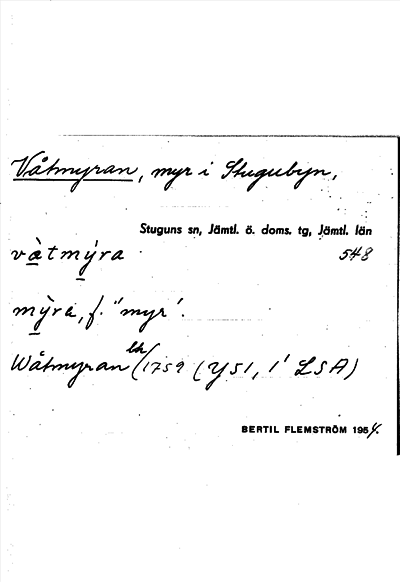 Våtmyran, myr i Stugubyn,
Stuguns sn, Jämtl. ö. doms. tg, Jämtl. län
và̱tmỳ̱ra 548
mỳ̱ra, f. "myr".
Wåtmyran lh (1759 (Y51, 1' LSA)
BERTIL FLEMSTRÖM 1954.